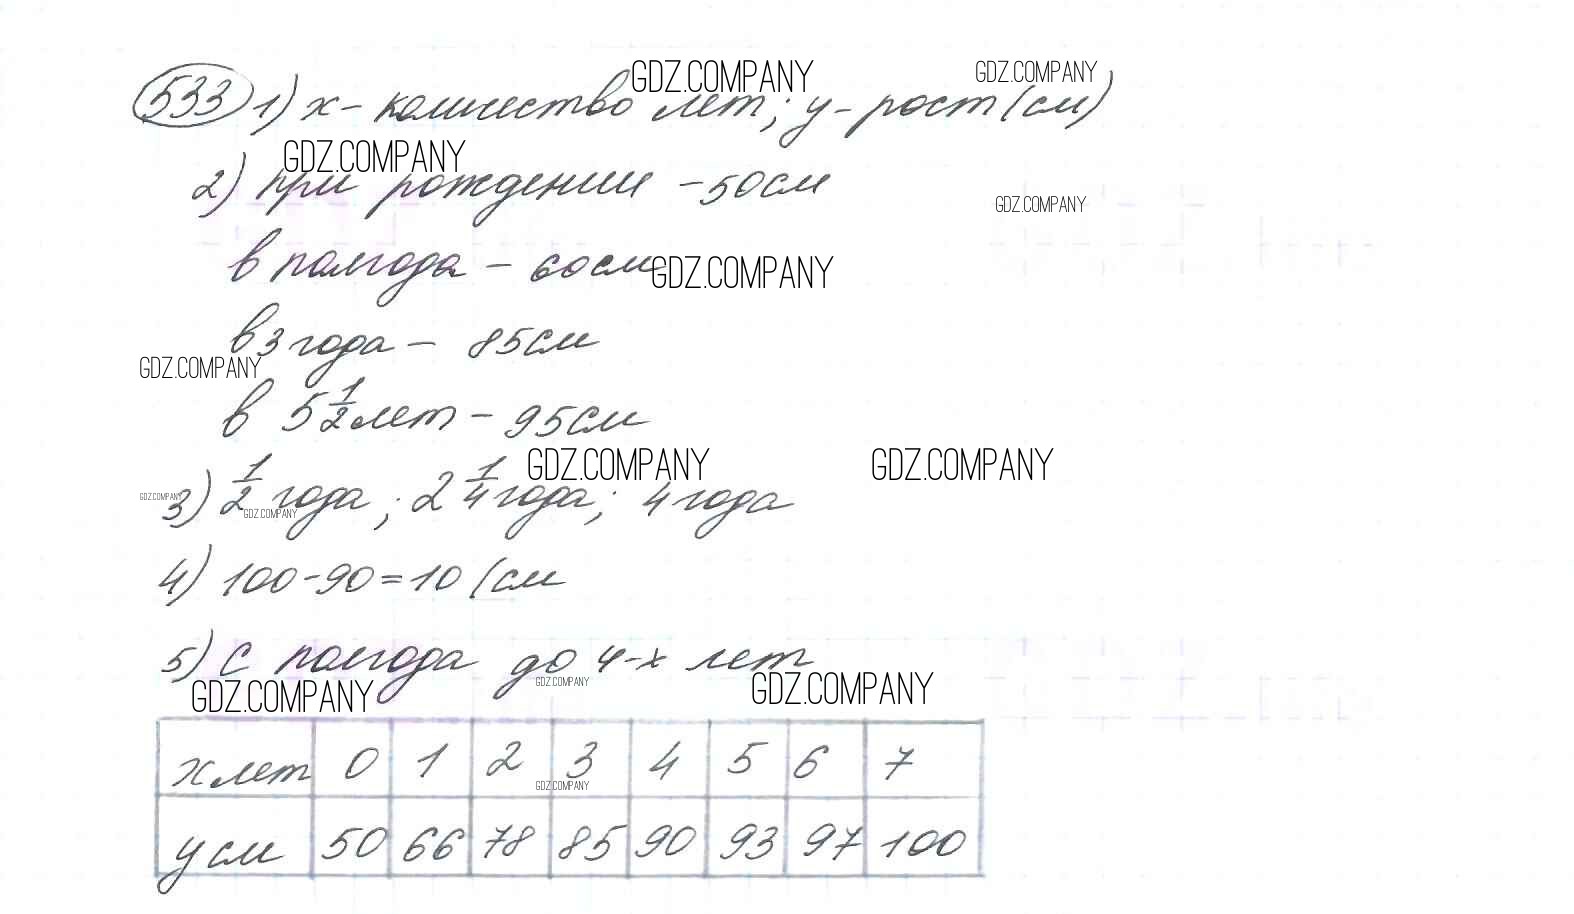 GDZ.COMPANY GDZ.COMPANY
533 1) x - количество лет; y - рост (см)
GDZ.COMPANY
2) при рождении - 50 см
GDZ.COMPANY
в полгода - 60 см GDZ.COMPANY
в 3 года - 85 см
GDZ.COMPANY
в 5 1/2 лет - 95 см
GDZ.COMPANY GDZ.COMPANY
GDZ.COMPANY
3) 1/2 года; 2 1/4 года; 4 года
GDZ.COMPANY
4) 100-90=10 (см
5) С полгода до 4-х лет
GDZ.COMPANY GDZ.COMPANY GDZ.COMPANY
x лет 0 1 2 3 4 5 6 7
GDZ.COMPANY
y см 50 66 78 85 90 93 97 100